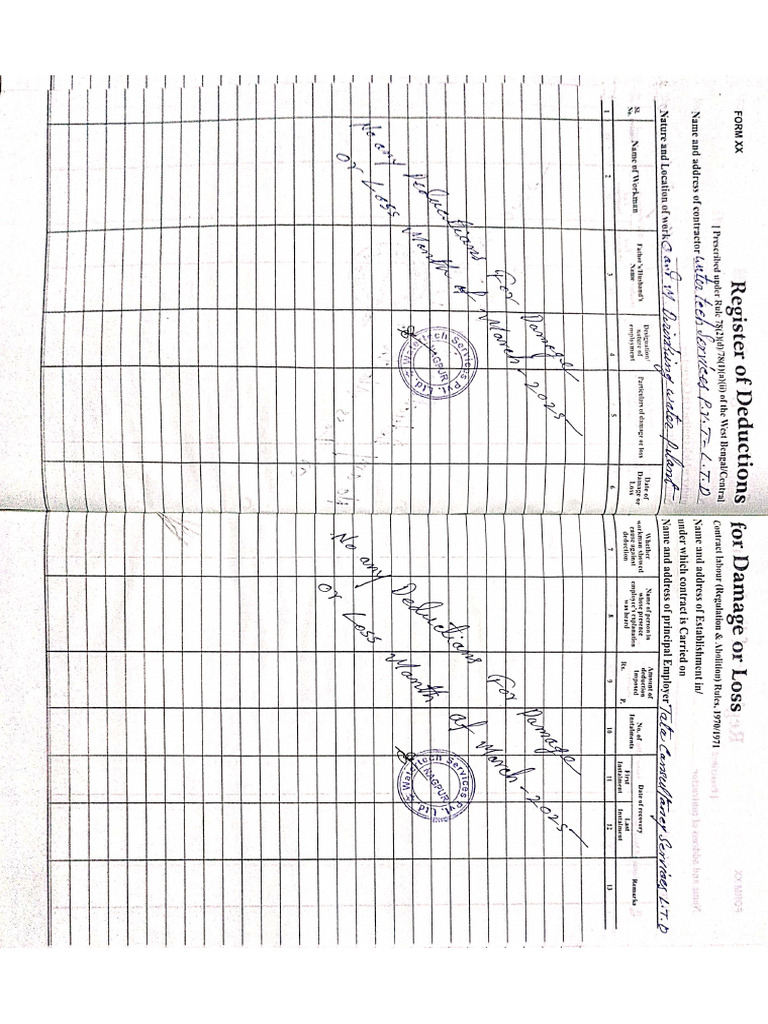 FORM XX
Register of Deductions for Damage or Loss
[ Prescribed under Rule 78(2)(d) 78(1)(a)(ii) of the West Bengal/Central Contract labour (Regulation & Abolition) Rules, 1970/1971
Name and address of contractor Water tech Services P.V.T - L.T.D
Name and address of Establishment in/
under which contract is Carried on
Nature and Location of work O and M Drinking water plant
Name and address of principal Employer Tata Consultancy Services L.T.D
Sl. No.
Name of Workman
Father's/Husband's Name
Designation/ nature of employment
Particulars of damage or loss
Date of Damage or Loss
Whether workman showed cause against deduction
Name of person in whose presence employer's explanation was heard
Amount of deduction Imposed Rs. P.
No. of Instalments
Date of recovery
First Instalment
Last Instalment
Remarks
1 2 3 4 5 6 7 8 9 10 11 12 13
No any Deductions for Damage
or Loss Month of March - 2025
Services Pvt. Ltd.
NAGPUR
No any Deductions for Damage
or Loss Month of March - 2025
Services Pvt. Ltd.
NAGPUR